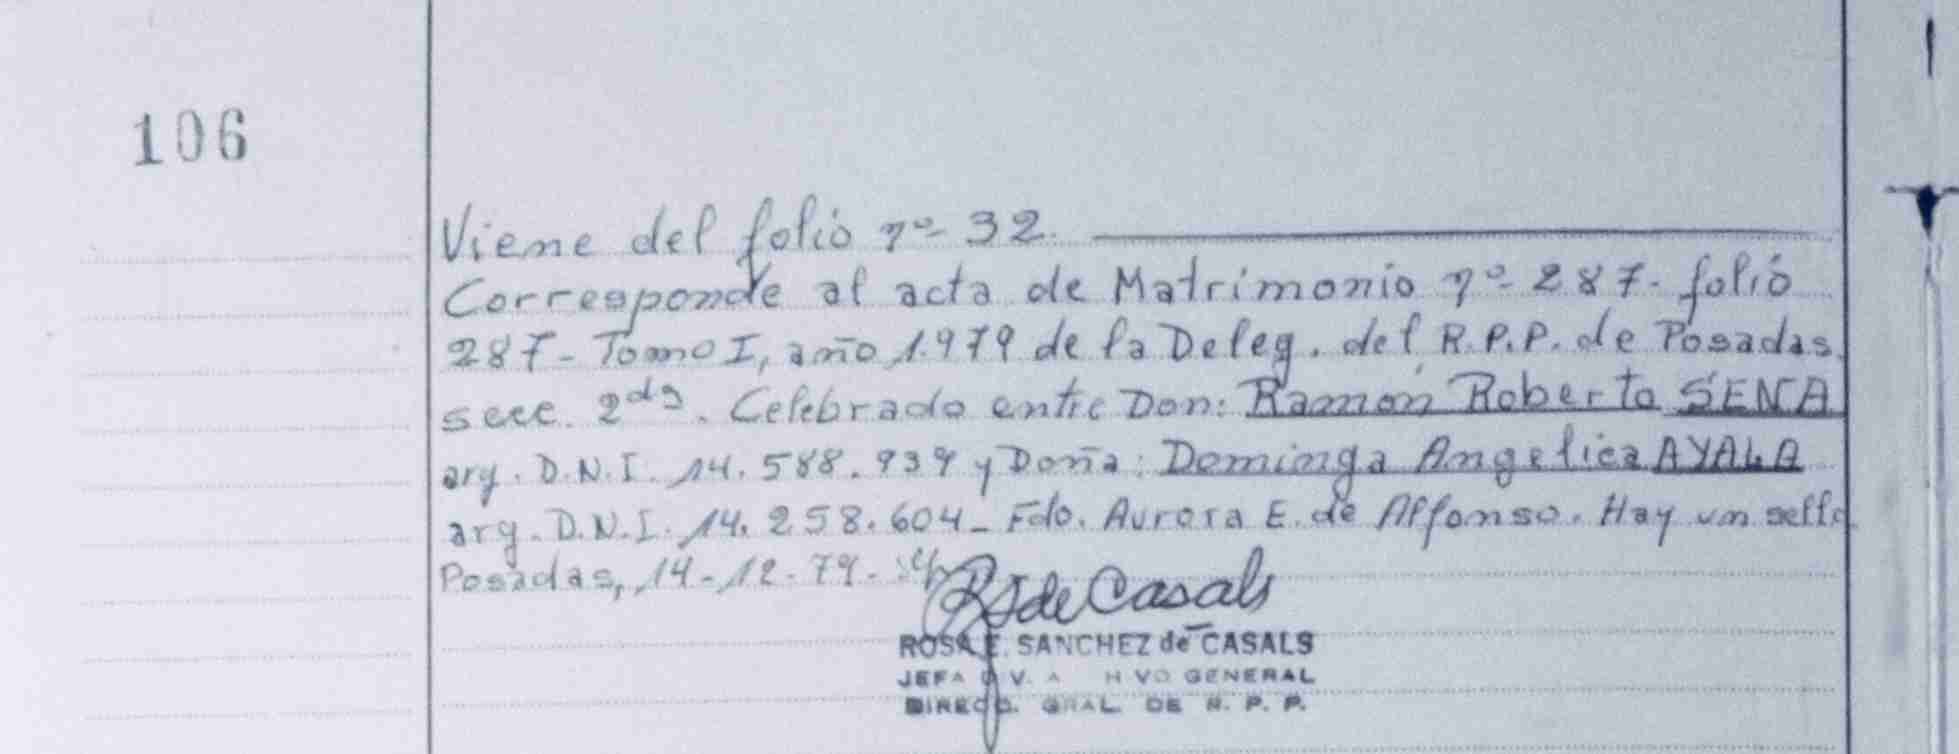 106
Viene del folio nº 32.
Corresponde al acta de Matrimonio nº 287. folio
287 - Tomo I, año 1.979 de la Deleg. del R.P.P. de Posadas.
secc. 2da. Celebrado entre Don: Ramón Roberto SENA
arg. D.N.I. 14.588.939 y Doña: Dominga Angelica AYALA
arg. D.N.I. 14.258.604 - Fdo. Aurora E. de Alfonso. Hay un sello
Posadas, 14-12-79.
de Casals
ROSA E. SANCHEZ de CASALS
JEFA DIV. A HVO GENERAL
DIRECC. GRAL. DE R. P. P.